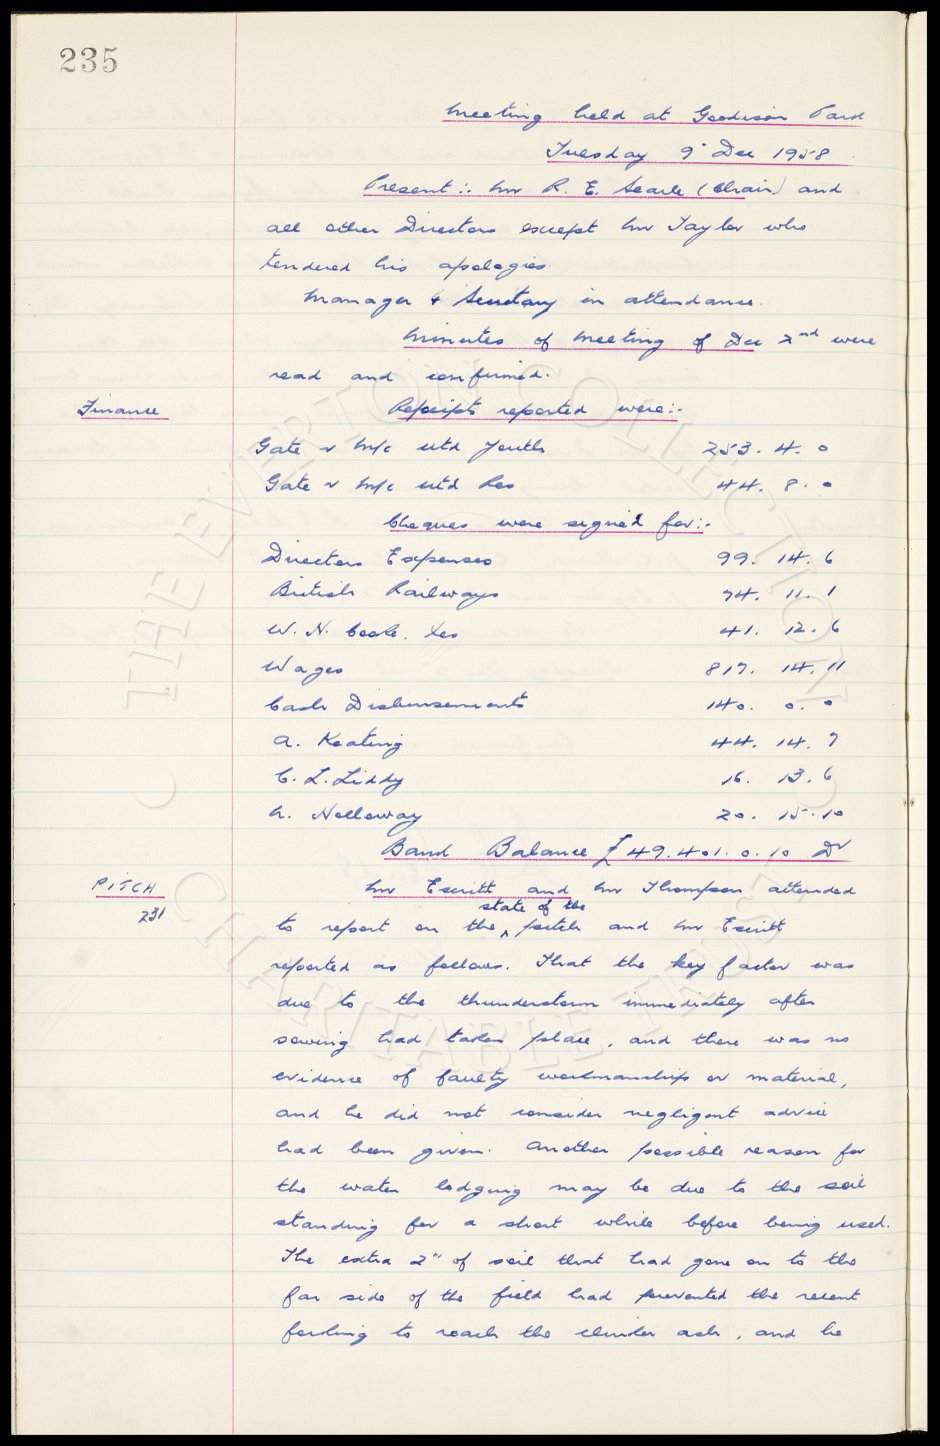 235
Meeting held at Goodison Park
Tuesday 9" Dec 1958
Present:- Mr R. E. Searle (Chair) and
all other Directors except Mr Taylor who
tendered his apologies.
Manager & Secretary in attendance.
Minutes of Meeting of Dec 2nd were
read and confirmed.
Finance
Receipts reported were:-
Gate v M/c Utd Youth 253. 4. 0
Gate v M/c Utd Res 44. 8. 0
Cheques were signed for:-
Directors Expenses 99. 14. 6
British Railways 74. 11. 1
W. H. 41. 12. 6
Wages 817. 14. 11
Cash Disbursements 140. 0. 0
A. Keating 44. 14. 7
C. L. Liddy 16. 13. 6
H. Holloway 20. 15. 10
Bank Balance £49.401.0.10 Dr
PITCH
231
Mr Escritt and Mr Thompson attended
state of the
to report on the ^ pitch and Mr Escritt
reported as follows. That the key factor was
due to the thunderstorm immediately after
sowing had taken place, and there was no
evidence of faulty workmanship or material,
and he did not consider negligent advice
had been given. Another possible reason for
the water lodging may be due to the soil
standing for a short while before being used.
The extra 2" of soil that had gone on to the
far side of the field had prevented the recent
forking to reach the clinker ash, and he
© THE EVERTON COLLECTION
CHARITABLE TRUST